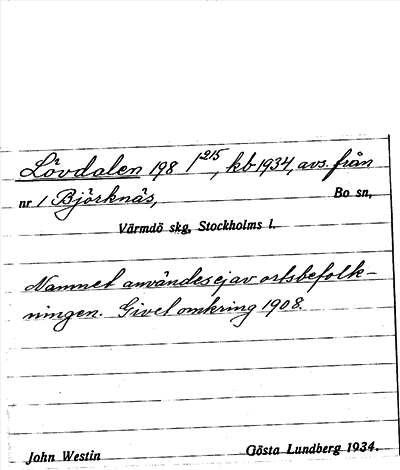 Lövdalen 198 1 215, kb 1934, avs. från
nr 1 Björknäs, Bo sn,
Värmdö skg, Stockholms l.
Namnet användes ej av ortsbefolk-
ningen. Givet omkring 1908.
John Westin Gösta Lundberg 1934.